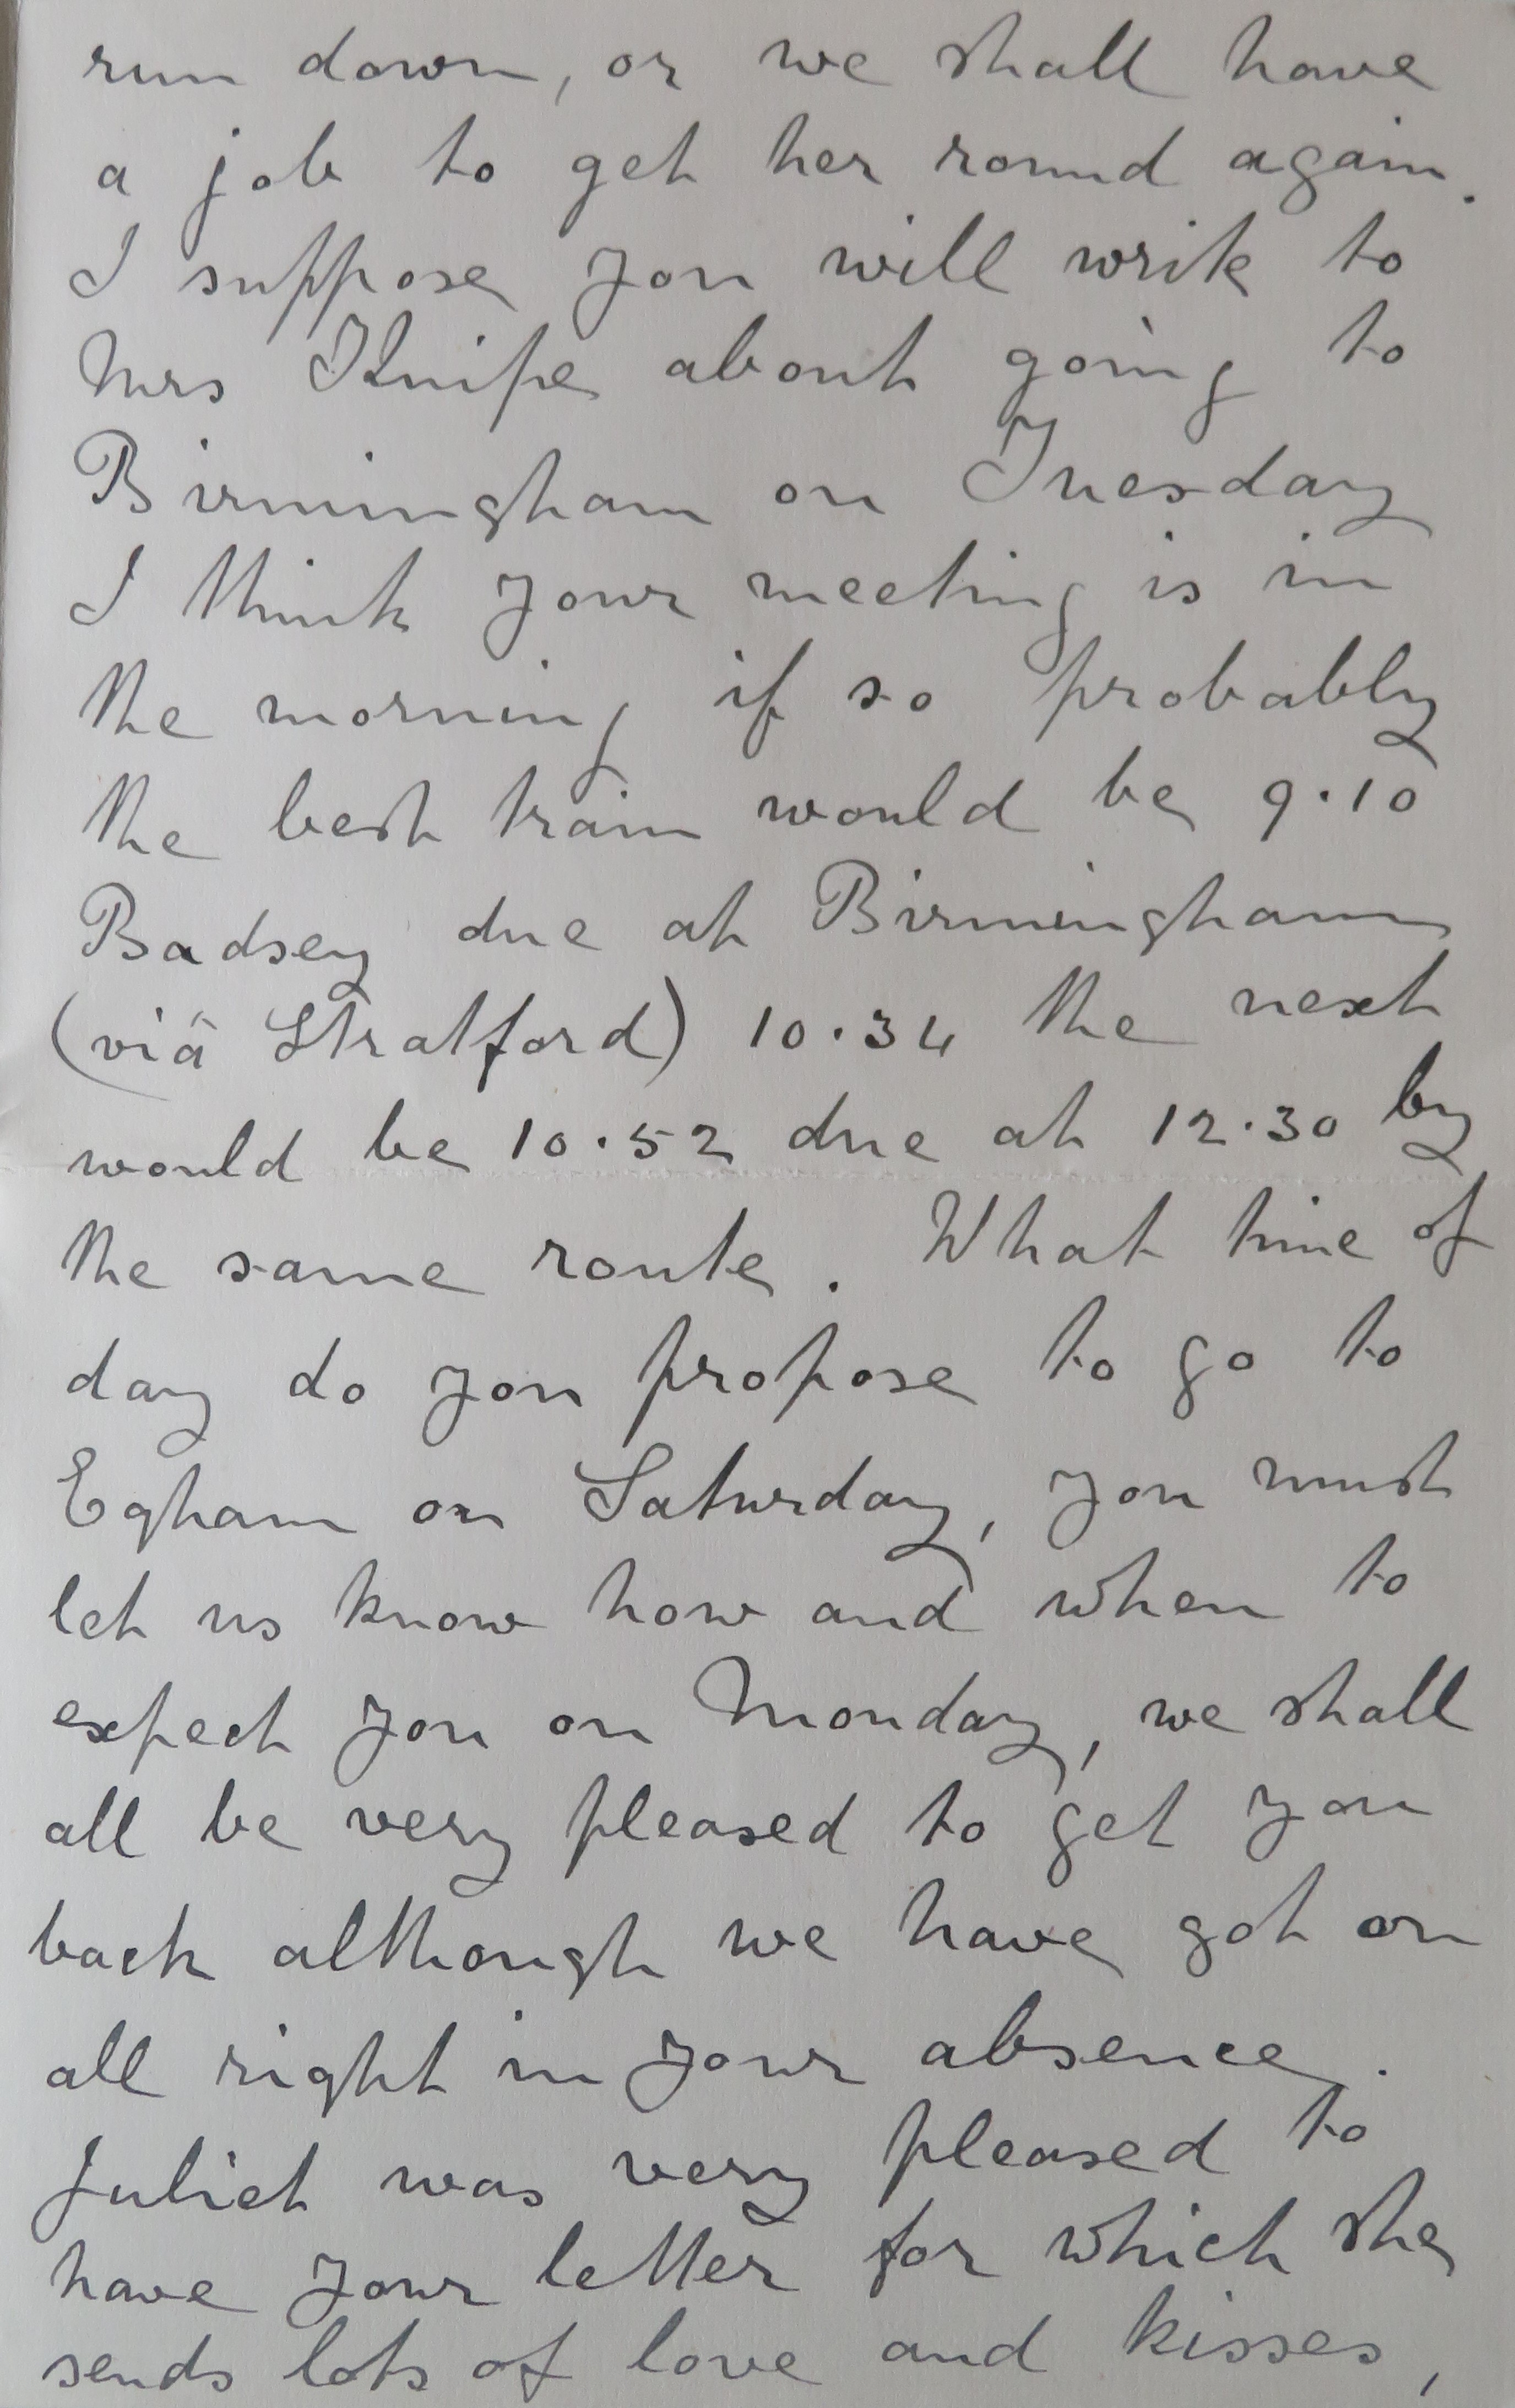 run down, or we shall have
a job to get her round again.
I suppose you will write to
Mrs Knipe about going to
Birmingham on Tuesday
I think your meeting is in
the morning if so probably
the best train would be 9.10
Badsey due at Birmingham
(viâ Stratford) 10.34 the next
would be 10.52 due at 12.30 by
the same route. What time of
day do you propose to go to
Egham on Saturday, you must
let us know how and when to
expect you on Monday, we shall
all be very pleased to get you
back although we have got on
all right in your absence.
Juliet was very pleased to
have your letter for which she
sends lots of love and kisses,